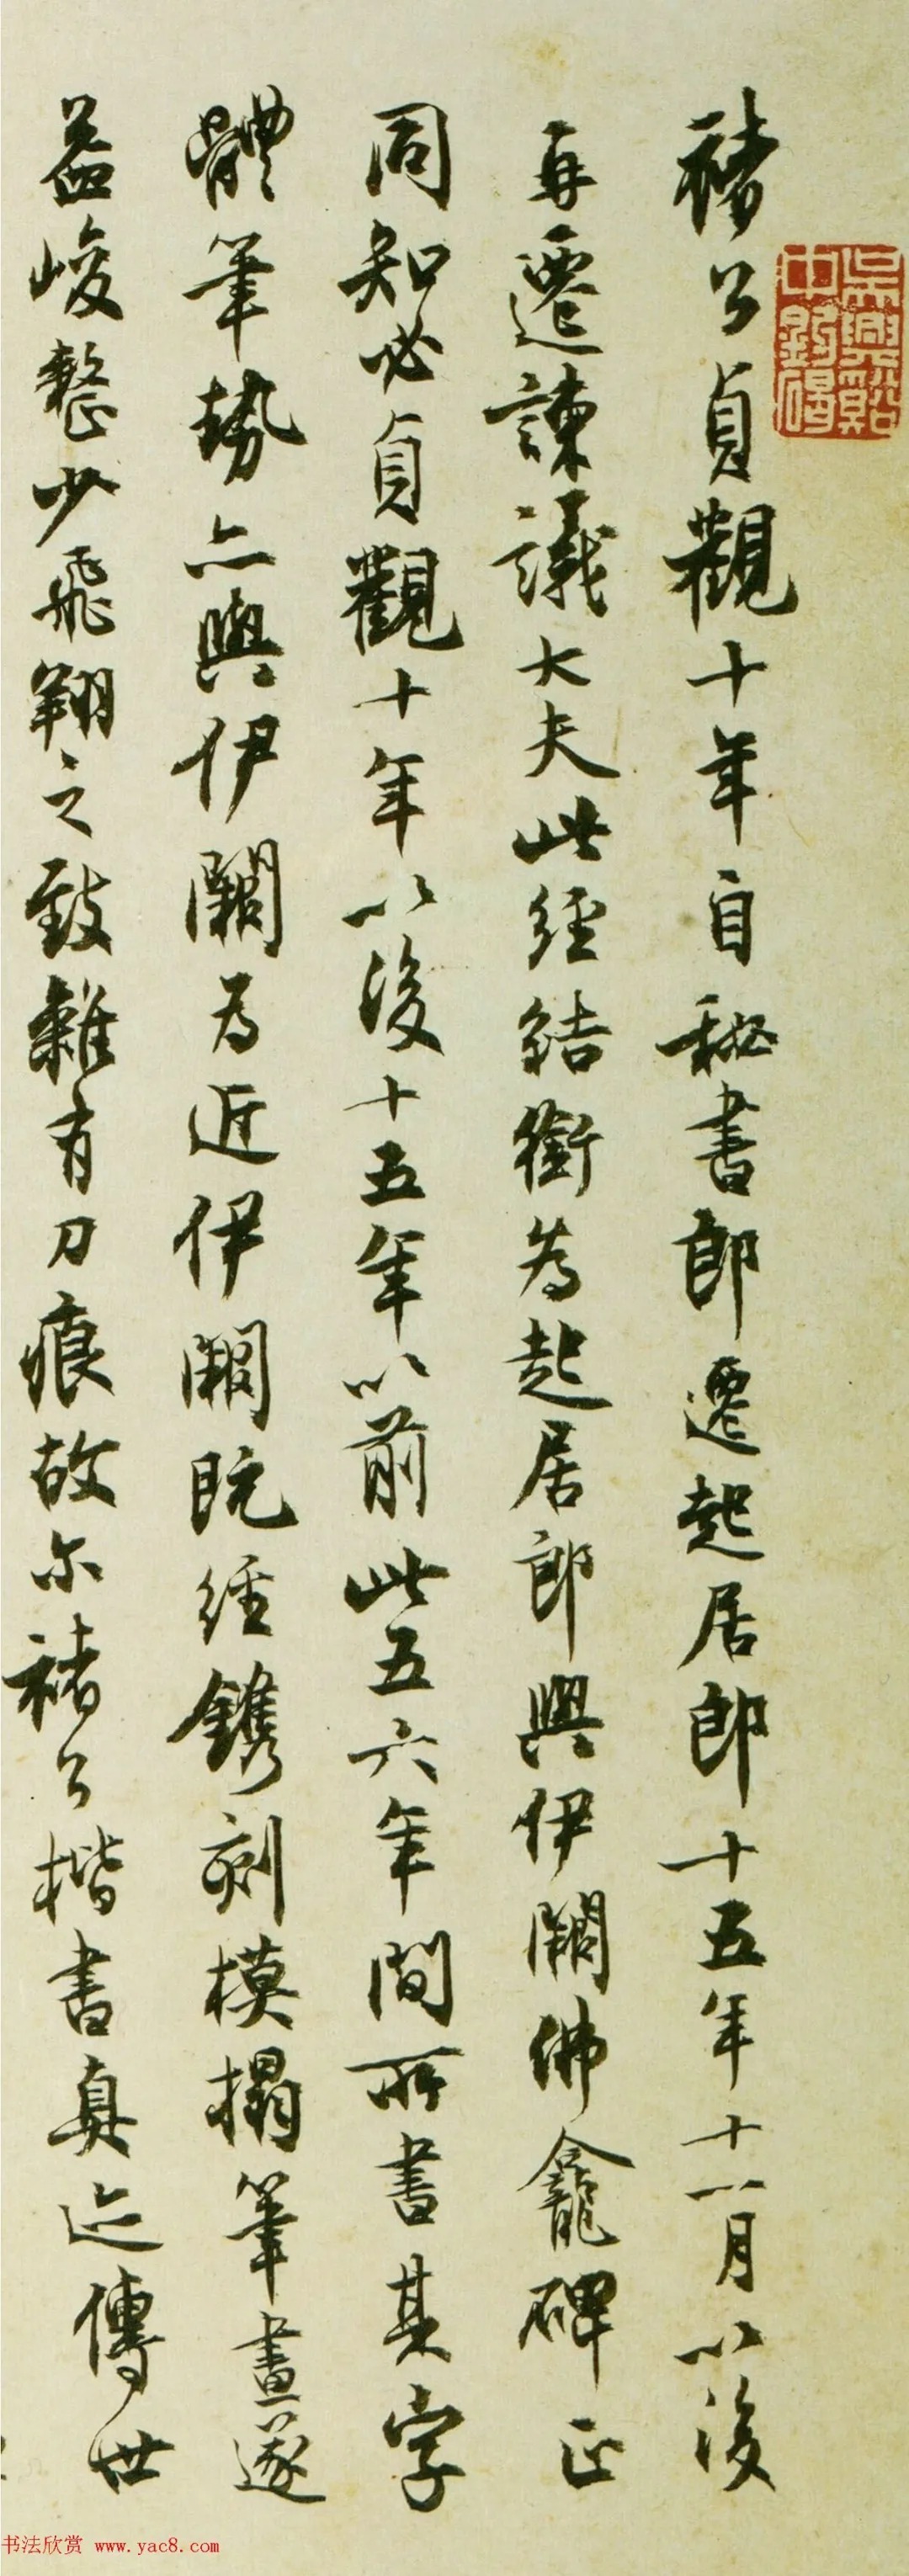 褚公貞觀十年自秘書郎遷起居郎十五年十一月以後
再遷諫議大夫此經結銜為起居郎與伊闕佛龕碑正
同知必貞觀十年以後十五年以前此五六年間所書其字
體筆勢亦與伊闕為近伊闕既經鐫刻模搨筆畫遂
益峻整少飛翔之致雜有刀痕故尔褚公楷書真迹傳世
书法欣赏 www.yac8.com